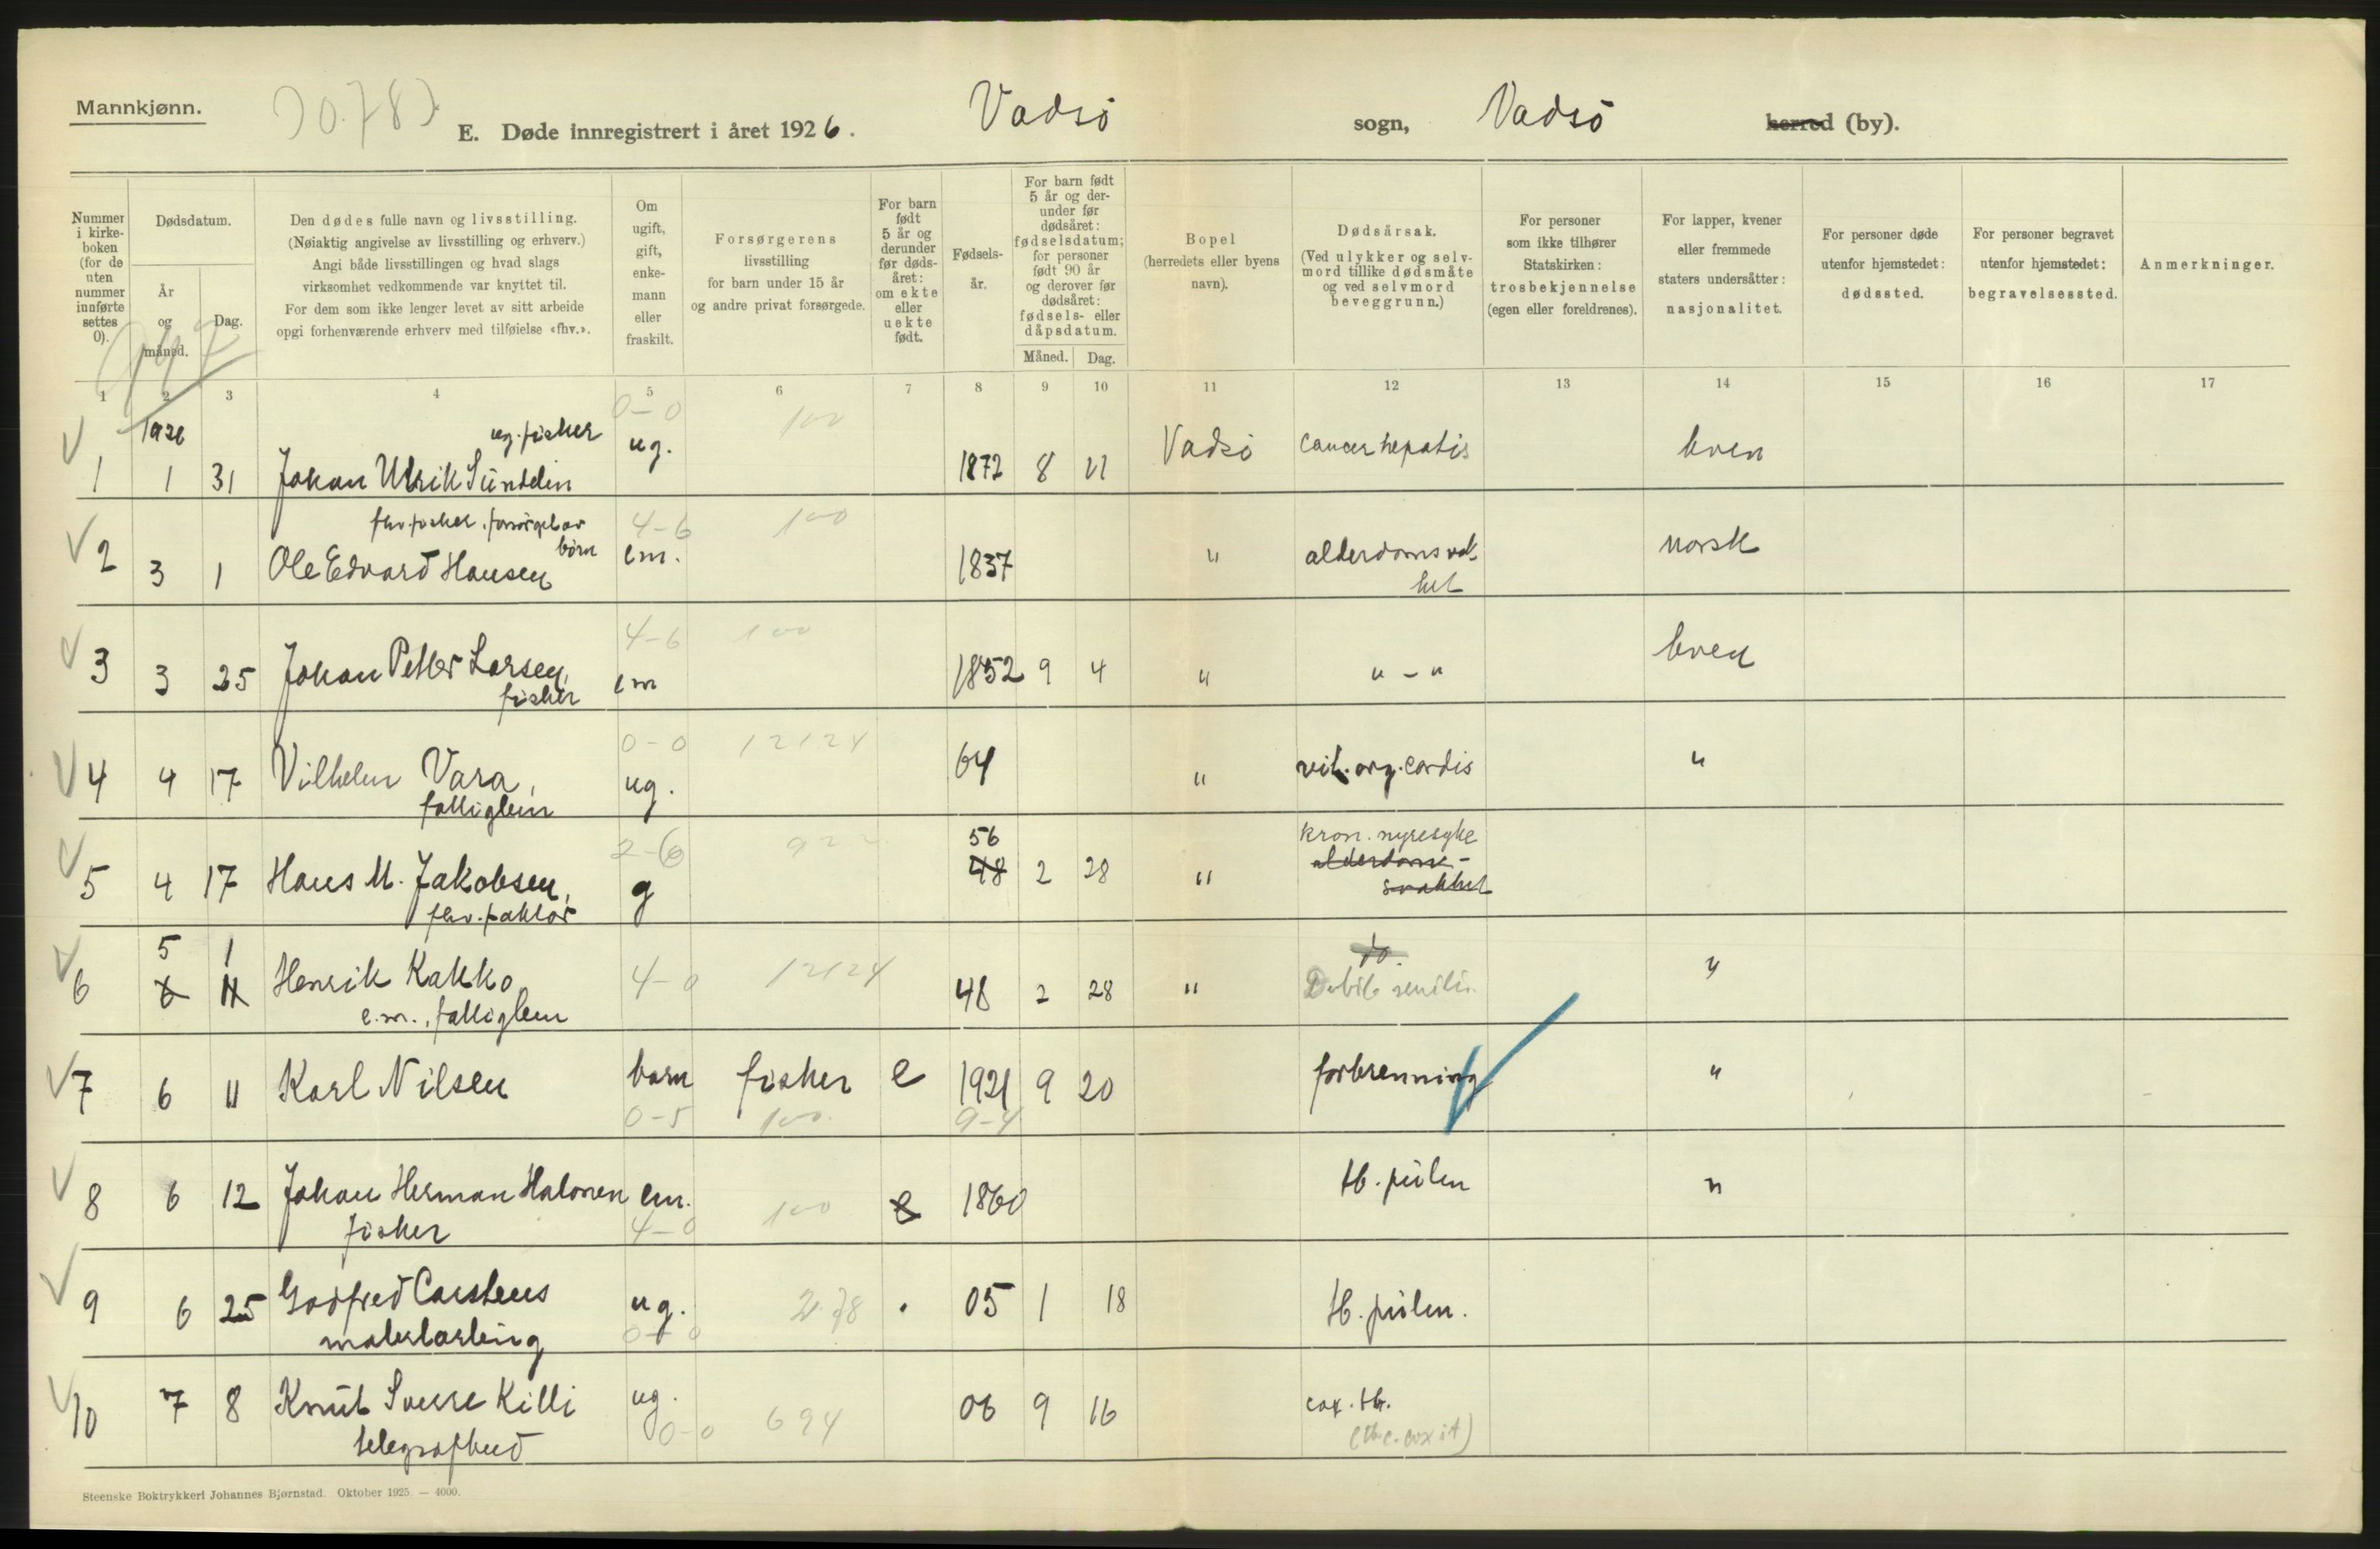 Mannkjønn.
E. Døde innregistrert i året 1926. Vadsö sogn, Vadsö herred (by).
Nummer i kirke-boken (for de uten nummer innførte settes 0).
Dødsdatum.
År og måned.
Dag.
Den dødes fulle navn og livsstilling.
(Nøiaktig angivelse av livsstilling og erhverv.)
Angi både livsstillingen og hvad slags
virksomhet vedkommende var knyttet til.
For dem som ikke lenger levet av sitt arbeide
opgi forhenværende erhverv med tilføielse «fhv.».
Om ugift, gift, enke-mann eller fraskilt.
Forsørgerens
livsstilling
for barn under 15 år
og andre privat forsørgede.
For barn født 5 år og derunder før døds-året: om ekte eller uekte født.
Fødsels-år.
For barn født 5 år og der-under før dødsåret: fødselsdatum; for personer født 90 år og derover før dødsåret: fødsels- eller dåpsdatum.
Måned. Dag.
Bopel
(herredets eller byens
navn).
Dødsårsak.
(Ved ulykker og selv-
mord tillike dødsmåte
og ved selvmord
beveggrunn.)
For personer
som ikke tilhører
Statskirken:
trosbekjennelse
(egen eller foreldrenes).
For lapper, kvener
eller fremmede
staters undersåtter:
nasjonalitet.
For personer døde
utenfor hjemstedet:
dødssted.
For personer begravet
utenfor hjemstedet:
begravelsessted.
Anmerkninger.
1 2 3 4 5 6 7 8 9 10 11 12 13 14 15 16 17
1926 ug. fisker 0-0 100
1 1 31 Johan Ulrik Sundelin ug. 1872 8 21 Vadsö cancer hepatis kven
fhv. fisker, forsörget av börn 4-6 100
2 3 1 Ole Edvard Hansen em. 1837 " alderdomssvakhet norsk
4-6 100
3 3 25 Johan Petter Larsen, em 1852 9 4 " " - " kven
fisker
0-0 12124
4 4 17 Vilhelm Vara, ug. 64 " vit. org. cordis "
fattiglem
2-6 922 56 kron. nyresyke
5 4 17 Hans M. Jakobsen, g 48 2 28 " alderdoms-
fhv. faktor svakhet
5 1 do.
6 6 11 Henrik Kakko 4-0 12124 48 2 28 " Debil. senilis "
e.m., fattiglem
7 6 11 Karl Nilsen barn fisker e 1921 9 20 forbrenning "
0-5 100 9-4
8 6 12 Johan Herman Halonen em. 100 e 1860 tb. pulm "
fisker 4-0
9 6 25 Godfred Carstens ug. 278 05 1 18 tb. pulm.
malerlærling 0-0
10 7 8 Knut Sverre Killi ug. 06 9 16 cox. tb.
telegrafbud 0-0 694 (tb.c. coxit)
Steenske Boktrykkeri Johannes Bjørnstad. Oktober 1925. — 4000.